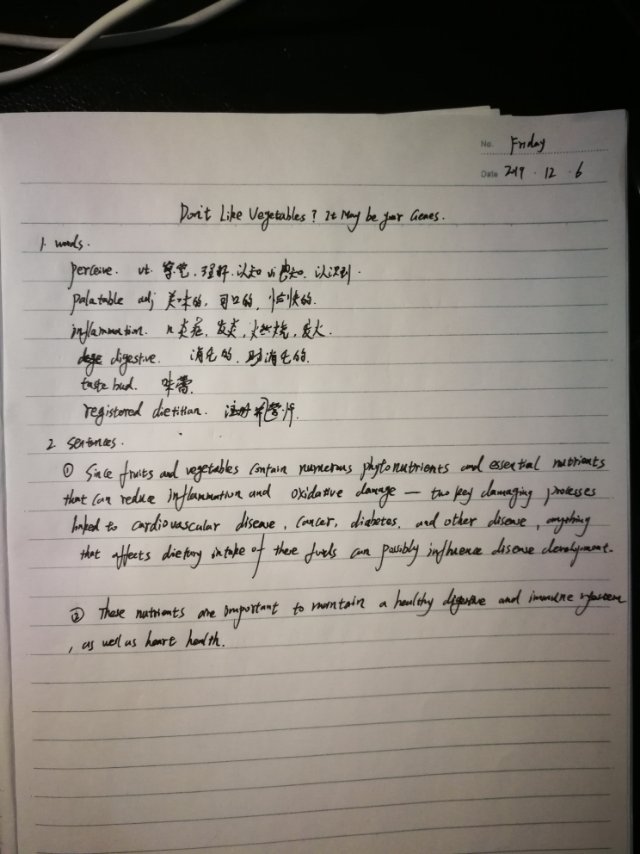 No. Friday
Date 2019 · 12 · 6
Don't Like Vegetables? It May be your Genes.
1. words.
perceive. vt. 察觉, 理解. 认知 vi 感知. 认识到.
palatable adj 美味的, 可口的, 愉快的.
inflammation. n 炎症, 发炎, 燃烧, 发火.
digestive. 消化的. 助消化的.
taste bud. 味蕾.
registered dietitian. 注册营养师.
2 sentences.
① Since fruits and vegetables contain numerous phytonutrients and essential nutrients
that can reduce inflammation and oxidative damage — two key damaging processes
linked to cardiovascular disease, cancer, diabetes, and other disease, anything
that affects dietary intake of these foods can possibly influence disease development.
② These nutrients are important to maintain a healthy digestive and immune system
, as well as heart health.